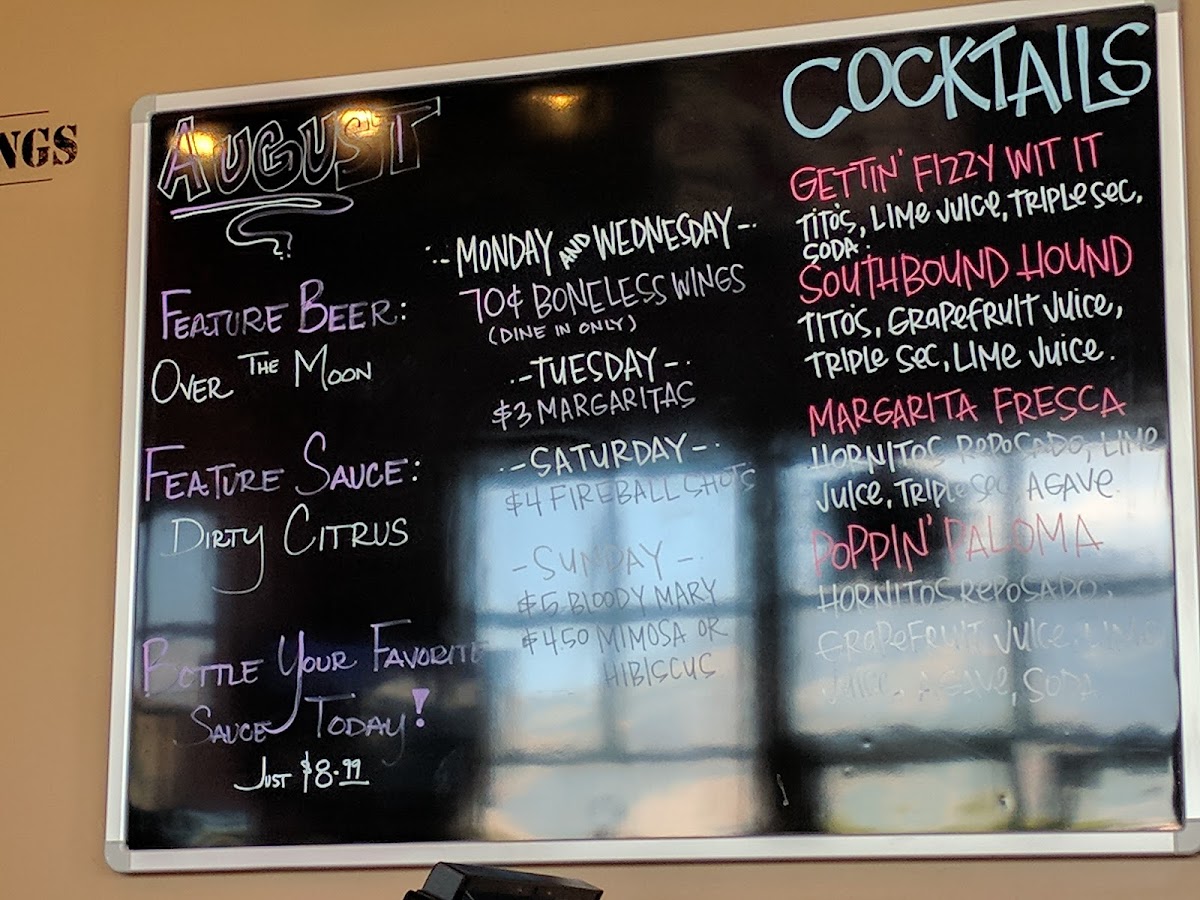 NGS
AUGUST
FEATURE BEER:
OVER THE MOON
FEATURE SAUCE:
DIRTY CITRUS
BOTTLE YOUR FAVORITE
SAUCE TODAY!
JUST $8.99
MONDAY AND WEDNESDAY
70¢ BONELESS WINGS
(DINE IN ONLY)
TUESDAY
$3 MARGARITAS
SATURDAY
$4 FIREBALL SHOTS
SUNDAY
$5 BLOODY MARY
$4.50 MIMOSA OR
HIBISCUS
COCKTAILS
GETTIN' FIZZY WIT IT
TITO'S, LIME JUICE, TRIPLE SEC,
SODA.
SOUTHBOUND HOUND
TITO'S, GRAPEFRUIT JUICE,
TRIPLE SEC, LIME JUICE.
MARGARITA FRESCA
HORNITOS REPOSADO, LIME
JUICE, TRIPLE SEC, AGAVE
POPPIN' PALOMA
HORNITOS REPOSADO,
GRAPEFRUIT JUICE, LIME
JUICE, AGAVE, SODA